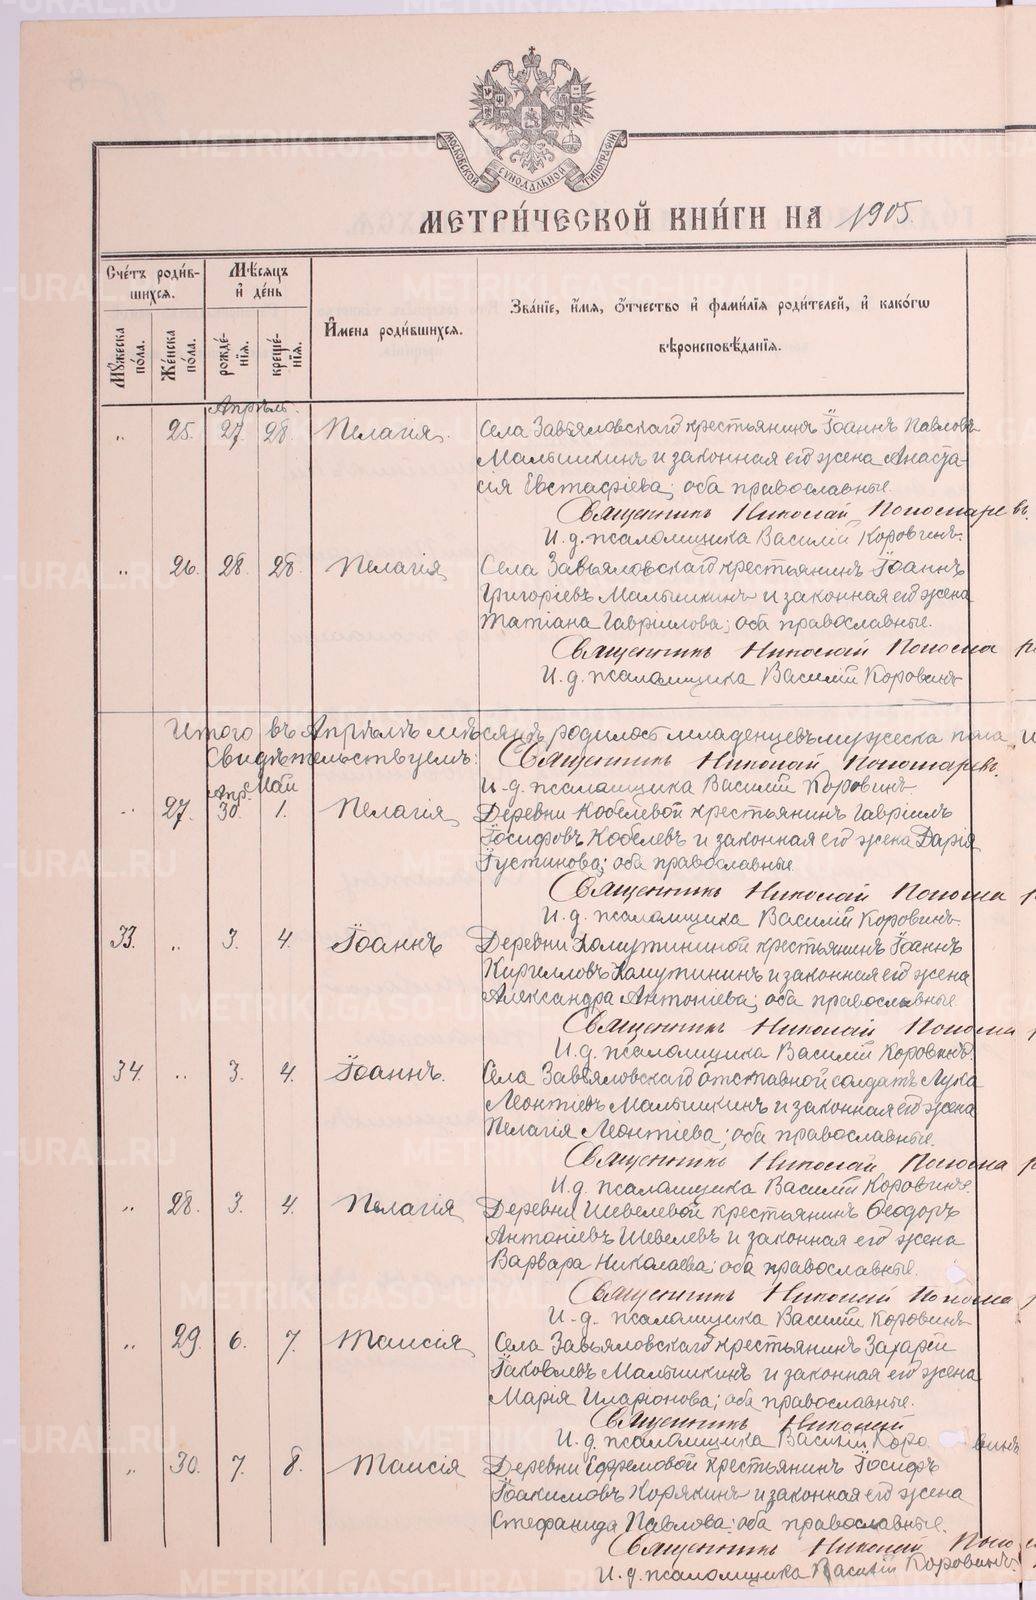 МОСКОВСКОЙ СѴНОДАЛЬНОЙ ТИПОГРАФІИ
МЕТРИ́ЧЕСКОЙ КНИ́ГИ НА 1905.
Сче́тъ роди́в-
шихся.
Мѣ́сяцъ
и҆ де́нь
И҆мена роди́вшихся.
Зва́нїе, и҆́мя, ѻ҆́тчество и҆ фами́лїя роди́телей, и҆ како́гѡ
вѣроисповѣ́данїя.
Мꙋ́жеска по́ла.
Же́нска по́ла.
рожде́-нїя.
креще́-нїя.
Апрѣль.
„ 25. 27. 28. Пелагія. Села Завьяловскаго крестьянинъ Іоаннъ Павловъ
Малышкинъ и законная его жена Анаста-
сія Евстафіева; оба православные.
Священникъ Николай Пономаревъ.
И. д. псаломщика Василій Коровинъ.
„ 26. 28. 28. Пелагія Села Завьяловскаго крестьянинъ Іоаннъ
Григоріевъ Малышкинъ и законная его жена
Татіана Гавріилова; оба православные.
Священникъ Николай Понома
И. д. псаломщика Василій Коровинъ
Итого въ Апрѣлѣ мѣсяцѣ родилось младенцевъ мужеска пола
Свидѣтельствуемъ: Священникъ Николай Пономаревъ.
И. д. псаломщика Василій Коровинъ.
Апр. Май
„ 27. 30. 1. Пелагія Деревни Кобелевой крестьянинъ Гавріилъ
Іосифовъ Кобелевъ и законная его жена Дарія
Іустинова; оба православные.
Священникъ Николай Понома
И. д. псаломщика Василій Коровинъ
33. „ 3. 4. Іоаннъ Деревни Хомутининой крестьянинъ Іоаннъ
Кирилловъ Хомутининъ и законная его жена
Александра Антоніева; оба православные
Священникъ Николай Понома
И. д. псаломщика Василій Коровинъ.
34. „ 3. 4. Іоаннъ. Села Завьяловскаго отставной солдатъ Лука
Леонтіевъ Малышкинъ и законная его жена
Пелагія Леонтіева; оба православные.
Священникъ Николай Понома
И. д. псаломщика Василій Коровинъ.
„ 28. 3. 4. Пелагія Деревни Шевелевой крестьянинъ Ѳеодоръ
Антоніевъ Шевелевъ и законная его жена
Варвара Николаева; оба православные.
Священникъ Николай Понома
И. д. псаломщика Василій Коровинъ
„ 29. 6. 7. Таисія Села Завьяловскаго крестьянинъ Захарій
Іаковлевъ Малышкинъ и законная его жена
Марія Иларіонова; оба православные.
Священникъ Николай
И. д. псаломщика Василій Коровинъ
„ 30. 7. 8. Таисія Деревни Ефремовой крестьянинъ Іосифъ
Іоакимовъ Корякинъ и законная его жена
Стефанида Павлова; оба православные.
Священникъ Николай Поно
И. д. псаломщика Василій Коровинъ.
METRIKI.GASO-URAL.RU